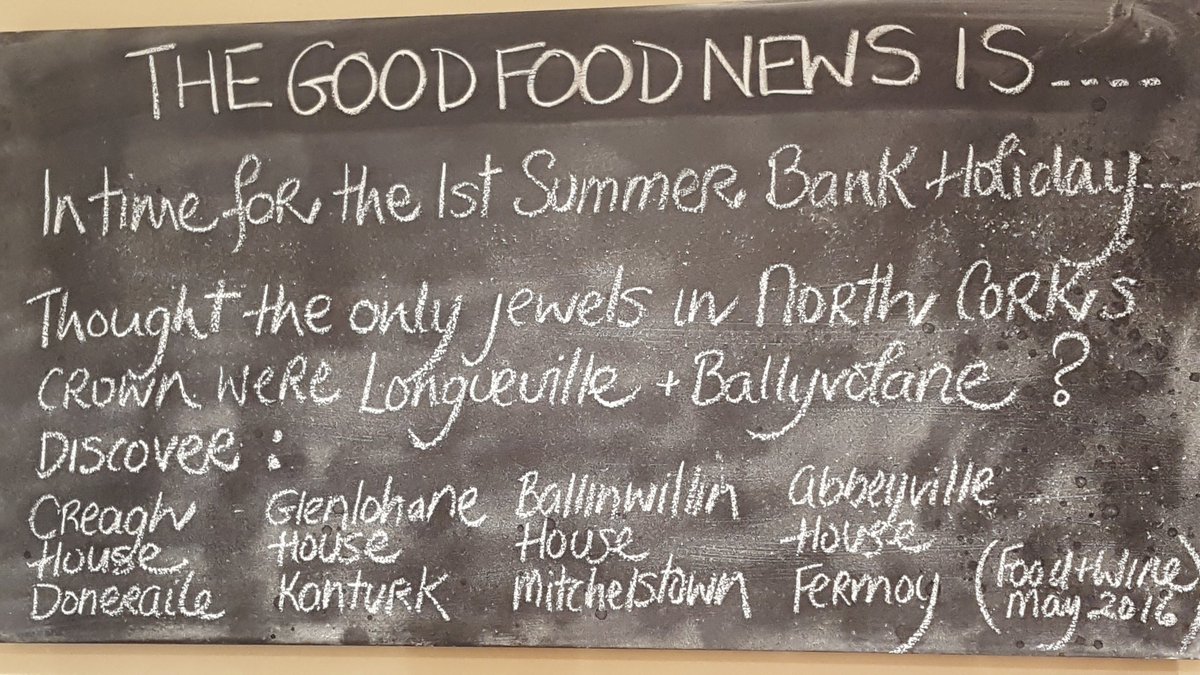 THE GOOD FOOD NEWS IS ----
In time for the 1st Summer Bank Holiday ---
Thought the only jewels in North Cork's
crown were Longueville + Ballyvolane ?
Discover :
Creagh House Doneraile
Glenlohane House Kanturk
Ballinwillin House Mitchelstown
Abbeyville House Fermoy
(Food + Wine May 2016)